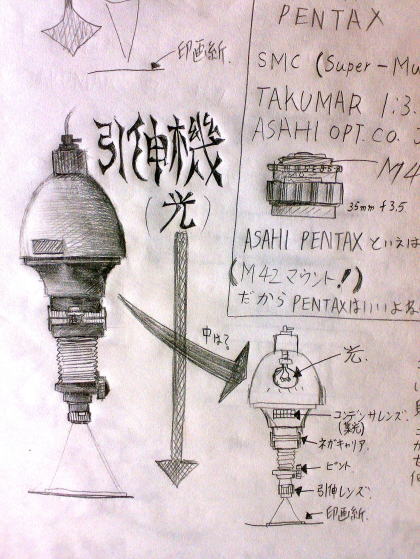 印画紙.
PENTAX
SMC (Super-Mu
TAKUMAR 1:3
ASAHI OPT. CO.
M4
35mm f3.5
ASAHI PENTAXといえば
(M42マウント!)
だからPENTAXはいいよね
引伸機
(光)
中は?
光.
コンデンサレンズ.
(集光)
ネガキャリア.
ピント.
引伸レンズ.
印画紙.